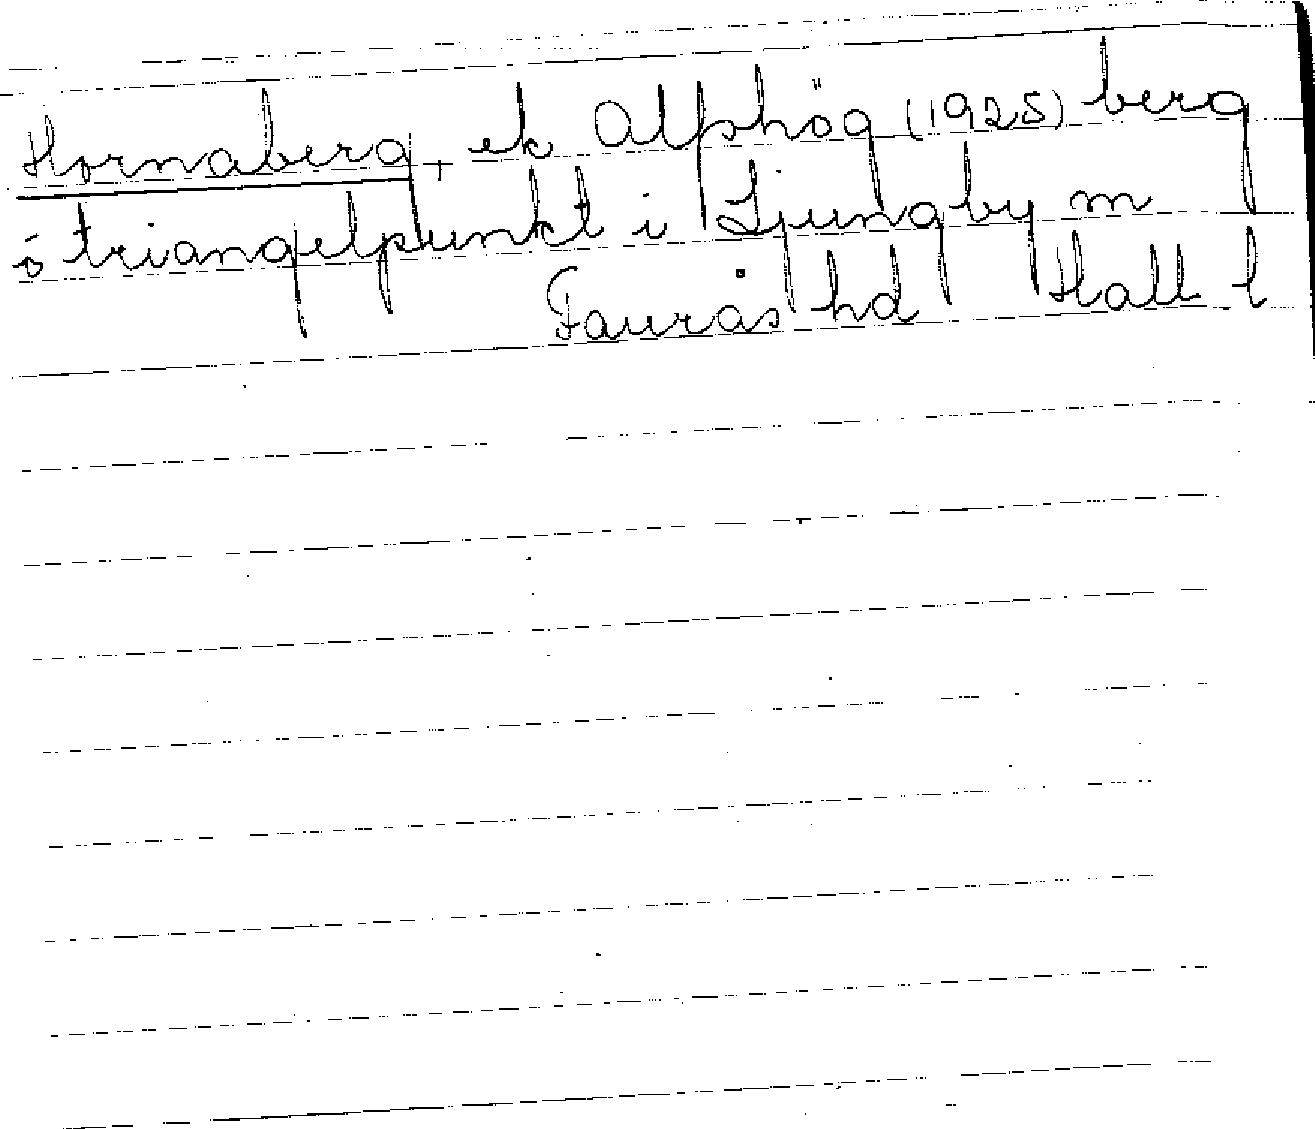 Hornaberg, ek Alphög (1925) berg
o triangelpunkt i Ljungby m
Faurås hd Hall l